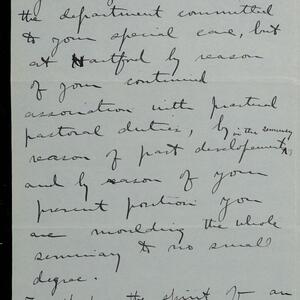 the department committed
to your special care, but
at Hartford by reason
of your continued
association with practical
pastoral duties, by
in the seminary
reason of past developement
and by reason of your
present position you
are moulding the whole
seminary to no small
degree.
the spirit of an